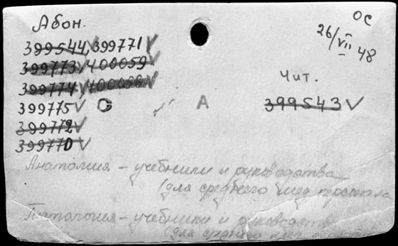 Абон.
ОС
26/VII 48
399544, 399771 V
399773 V 400059
399774 V
Чит.
399775 V
А
399543 V
399772 V
399770 V
Анатомия – учебники и руководства
(для среднего мед. персонала
– учебники и руководства
(для среднего мед.